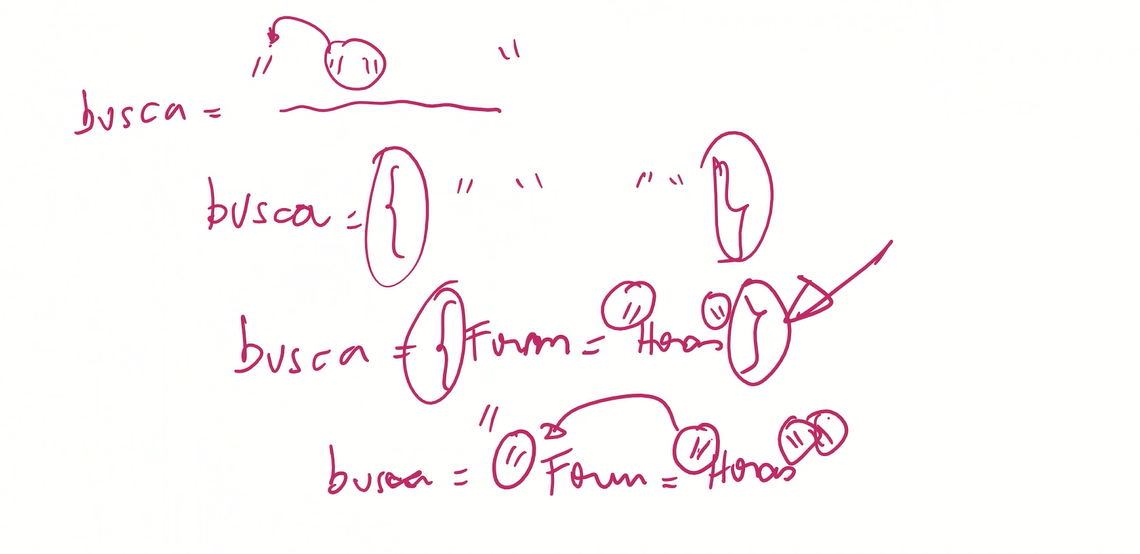 " " " "
busca =
busca = { " " " " }
busca = { Form = "Horas" }
"
busca = " Form = "Horas" "